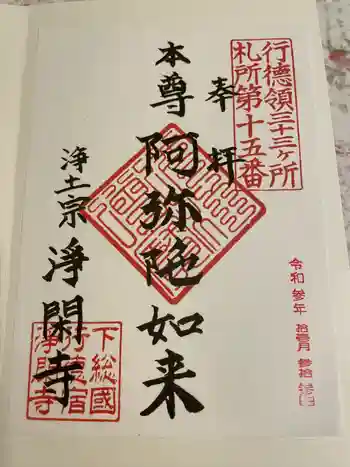 行徳領三十三ヶ所
札所第十五番
奉拝
本尊 阿弥陀如来
浄土宗 浄閑寺
下総國
行徳宿
浄閑寺
令和参年